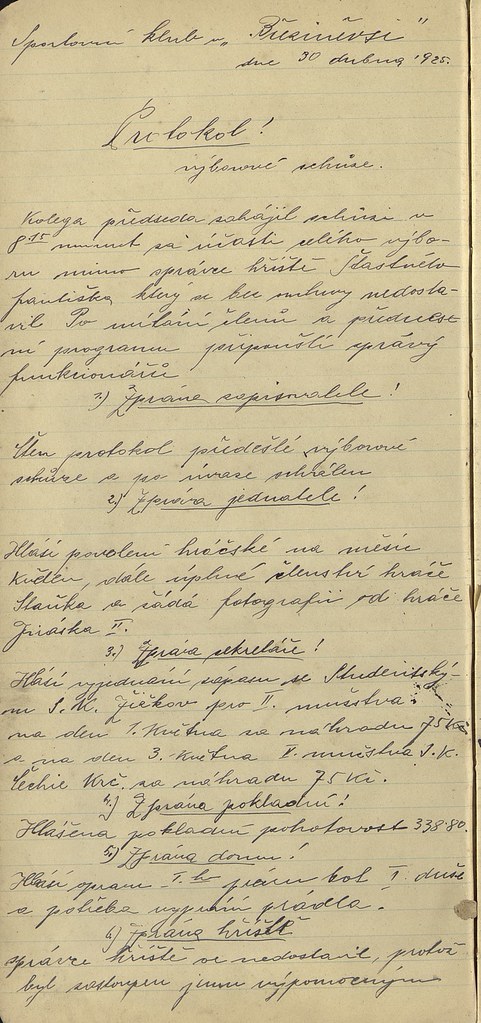 Sportovní klub v „Březiněvsi"
dne 30 dubna 1925.
Protokol!
výborové schůze.
Kolega předseda zahájil schůzi v
8 15 minut za účasti celého výbo-
ru mimo správce hřiště Šťastného
Františka, který se bez omluvy nedosta-
vil Po uvítání členů a přednese
ní programu připouští zprávy
funkcionářů
1.) Zpráva zapisovatele!
Čten protokol předešlé výborové
schůze a po úvaze schválen
2.) Zpráva jednatele!
Hlásí povolení hráčské na měsíc
Květen, dále úplné členství hráče
Staňka a žádá fotografii od hráče
Jiráska II.
3.) Zpráva sekretáře!
Hlásí vyjednání zápasu se Studentský-
m S.K. Žižkov pro II. mužstva:
na den 1. Května za náhradu 75 Kč
a na den 3. Května II. mužstva S.K.
Čechie Krč. za náhradu 75 Kč.
4.) Zpráva pokladní!
Hlášena pokladní pohotovost 338·80.
5.) Zpráva domu!
Hlásí opravu párů bot 1 duše
a potřeba vyprání prádla.
6) Zpráva hřiště
správce hřiště se nedostavil, protož
byl zastoupen jeho výpomocným